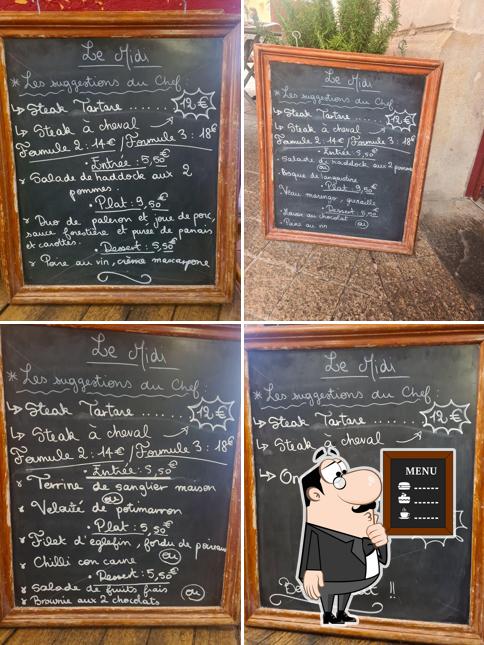 Le Midi
* Les suggestions du Chef :
↳ Steak Tartare ...... 12 €
↳ Steak à cheval
Formule 2 : 14€ / Formule 3 : 18€
• Entrée : 5,50€
Salade de haddock aux 2
pommes.
• Plat : 9,50€
Duo de paleron et joue de porc,
sauce forestière et purée de panais
et carottes.
• Dessert : 5,50€
Poire au vin, crème mascarpone
Le Midi
* Les suggestions du Chef
↳ Steak Tartare ..... 12 €
↳ Steak à cheval
Formule 2 : 14€ / Formule 3 : 18€
• Entrée : 5,50€
Salade de haddock aux 2 pommes
ou
Bisque de langoustine
• Plat : 9,50
Veau marengo,
• Dessert : 5,50€
au chocolat
ou
Poire au vin
Le Midi
* Les suggestions du Chef :
↳ Steak Tartare ...... 12 €
↳ Steak à cheval
Formule 2 : 14€ / Formule 3 : 18€
• Entrée : 5,50€
Terrine de sanglier maison
ou
Velouté de potimarron
• Plat : 5,50€
Filet d'églefin, fondu de poireaux
ou
Chilli con carne
• Dessert : 5,50€
Salade de fruits frais
ou
Brownie aux 2 chocolats
Le Midi
* Les suggestions du Chef :
↳ Steak Tartare ...... 12 €
↳ Steak à cheval
MENU
!!